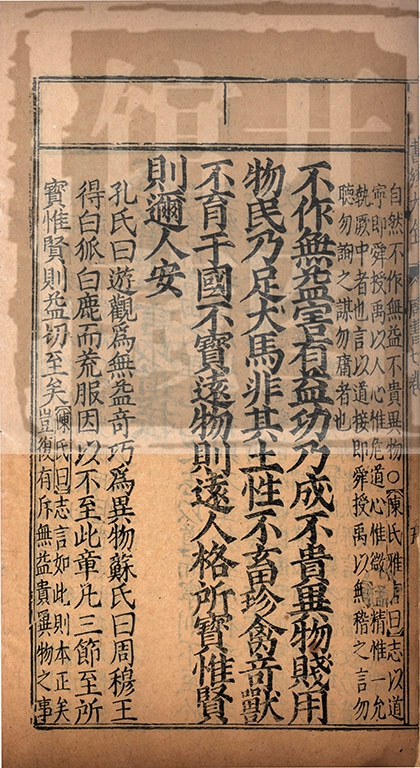 自然不作無益不貴異物○陳氏雅言曰志以道
寧即舜授禹以人心惟危道心惟微惟精惟一允
執厥中者也言以道接即舜授禹以無稽之言勿
聽勿詢之謀勿庸者也
不作無益害有益功乃成不貴異物賤用
物民乃足犬馬非其土性不畜珍禽奇獸
不育于國不寶遠物則遠人格所寶惟賢
則邇人安
孔氏曰遊觀爲無益奇巧爲異物蘇氏曰周穆王
得白狐白鹿而荒服因以不至此章凡三節至所
寶惟賢則益切至矣陳氏曰志言如此則本正矣
豈復有斥無益貴異物之事